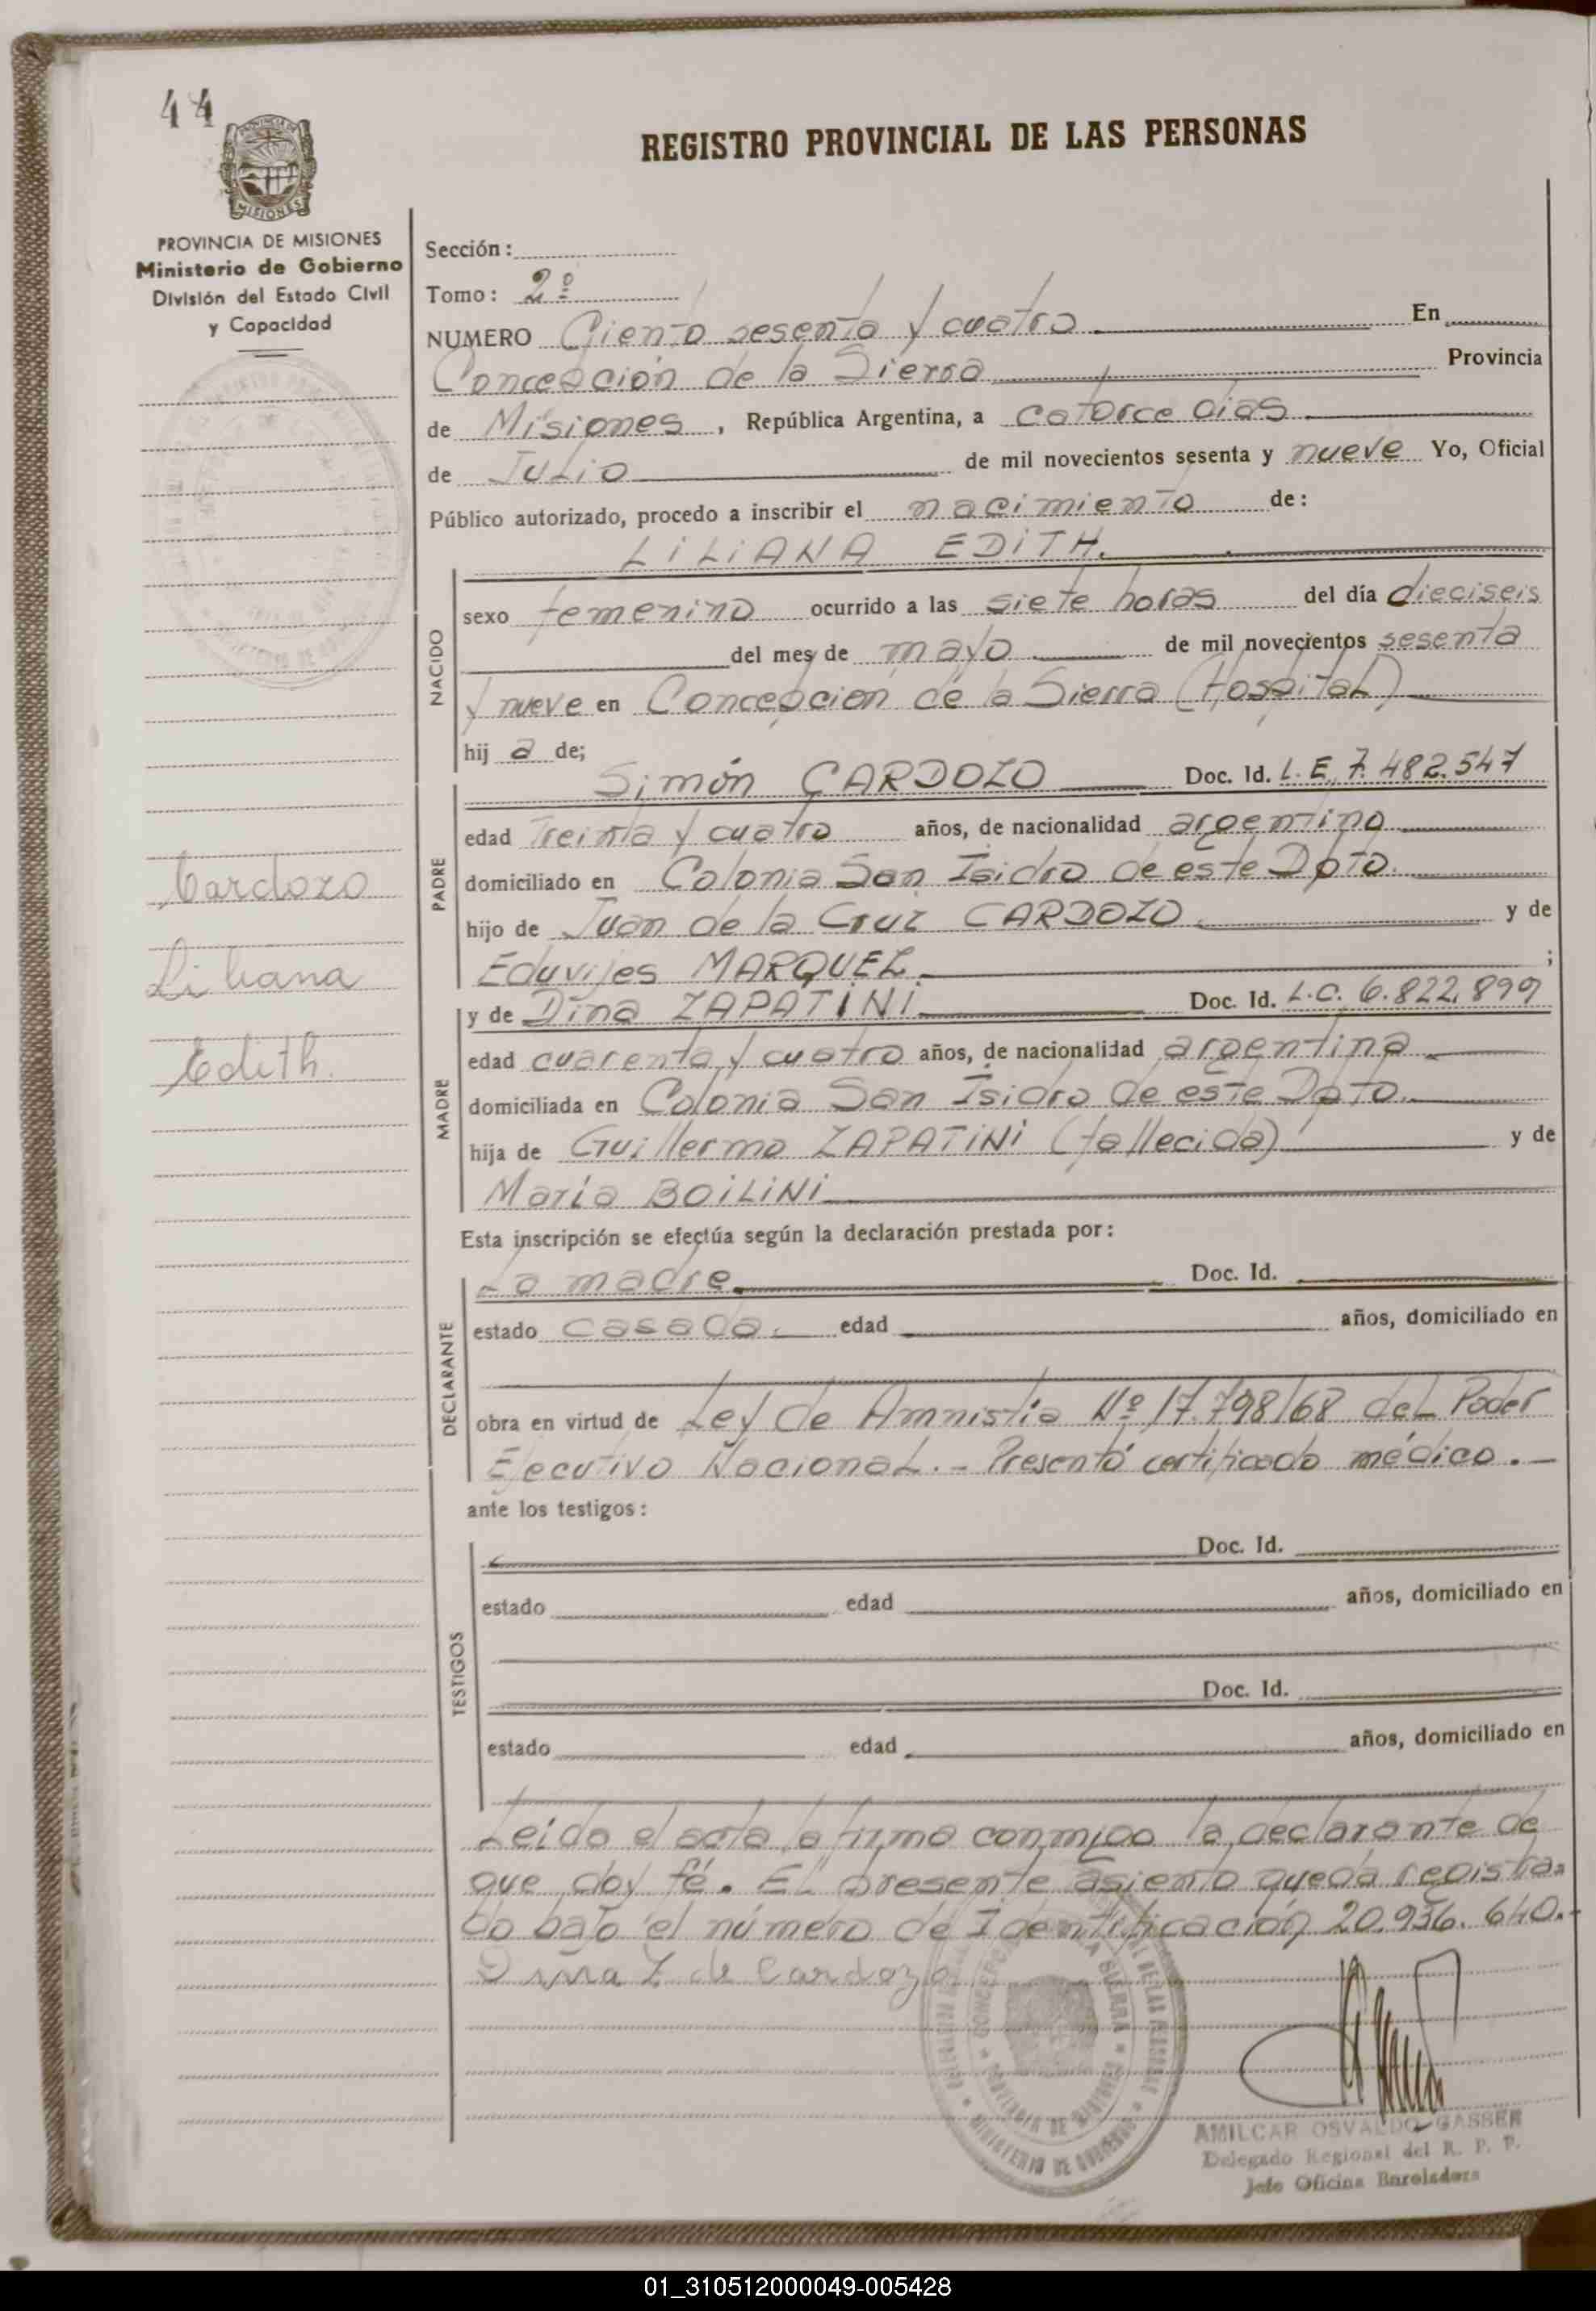 44
PROVINCIA DE
MISIONES
REGISTRO PROVINCIAL DE LAS PERSONAS
PROVINCIA DE MISIONES
Ministerio de Gobierno
División del Estado Civil
y Capacidad
Sección:
Tomo: 2º
NUMERO Ciento sesenta y cuatro En
Concepción de la Sierra Provincia
de Misiones, República Argentina, a catorce dias
de Julio de mil novecientos sesenta y nueve Yo, Oficial
Público autorizado, procedo a inscribir el nacimiento de:
LILIANA EDITH.
NACIDO
sexo femenino ocurrido a las siete horas del día dieciseis
del mes de mayo de mil novecientos sesenta
y nueve en Concepción de la Sierra (Hospital)
hij a de;
Simón CARDOZO Doc. Id. L.E. 7.482.547
PADRE
edad Treinta y cuatro años, de nacionalidad argentino
domiciliado en Colonia San Isidro de este Dpto.
hijo de Juan de la Cruz CARDOZO y de
Eduvijes MARQUEZ ;
Cardozo
Liliana
Edith.
y de Dina ZAPATINI Doc. Id. L.C. 6.822.899
MADRE
edad cuarenta y cuatro años, de nacionalidad argentina
domiciliada en Colonia San Isidro de este Dpto.
hija de Guillermo ZAPATINI (fallecido) y de
María BOILINI
Esta inscripción se efectúa según la declaración prestada por:
DECLARANTE
La madre Doc. Id.
estado casada. edad años, domiciliado en
obra en virtud de Ley de Amnistia Nº 17.798/68 del Poder
Ejecutivo Nacional.- Presentó certificado médico.-
ante los testigos:
TESTIGOS
Doc. Id.
estado edad años, domiciliado en
Doc. Id.
estado edad años, domiciliado en
Leida el acta la firma conmigo la declarante de
que doy fé. El presente asiento queda registra-
do bajo el número de Identificación 20.936.640.-
Dina Z de Cardozo
CONCEPCION DE LA SIERRA
PROVINCIA DE MISIONES
MINISTERIO DE GOBIERNO
AMILCAR OSVALDO GASSER
Delegado Regional del R. P. P.
Jefe Oficina Enroladora
01_310512000049-005428